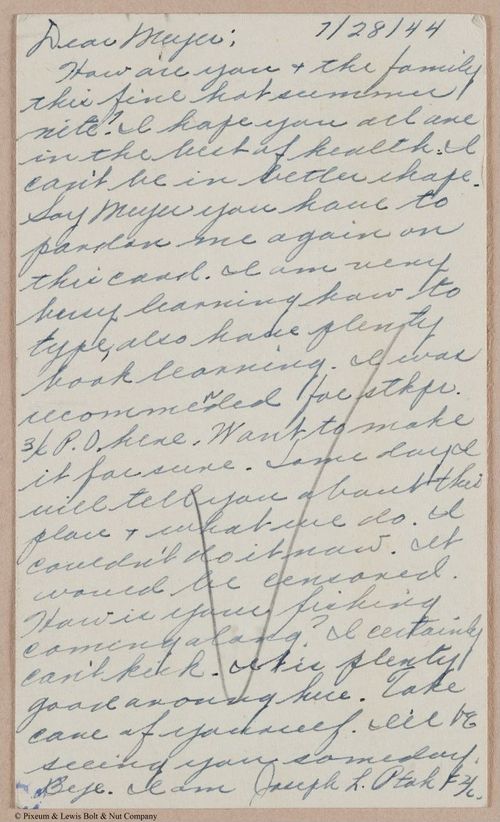 Dear Meyer; 7/28/44
How are you + the family
this fine hot summer
nite? I hope you all are
in the best of health. I
can't be in better shape.
Say Meyer you have to
pardon me again on
this card. I am very
busy learning how to
type, also have plenty
book learning. I was
recommended for stkpr.
3/c P.O. here. Want to make
it for sure. Some day I
will tell you about this
place + what we do. I
couldn't do it now. It
would be censored.
How is your fishing
coming along? I certainly
can't kick. It is plenty
good around here. Take
care of yourself. I'll be
seeing you someday.
Bye. I am Joseph L. Ptak F 2/c.
© Pixeum & Lewis Bolt & Nut Company